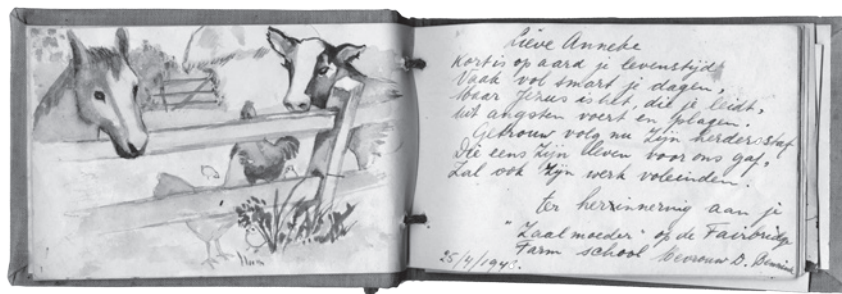 Lieve Anneke
Kort is op aard je levenstijd,
Vaak vol smart je dagen,
Maar Jezus is het, die je leidt,
Uit angsten voert en plagen.
Getrouw volg nu Zijn herdersstaf
Die eens Zijn leven voor ons gaf,
Zal ook Zijn werk voleinden.
ter herinnering aan je
"Zaalmoeder" op de Fairbridge
Farm school Mevrouw D.
25/4/194